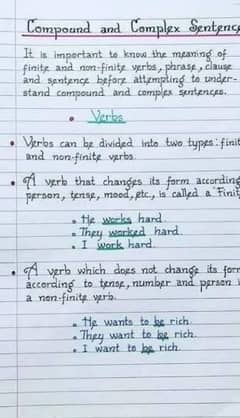 Compound and Complex Sentenc
It is important to know the meaning of
finite and non-finite verbs, phrase, clause
and sentence before attempting to under-
stand compound and complex sentences.
• Verbs
• Verbs can be divided into two types: finit
and non-finite verbs.
• A verb that changes its form according
person, tense, mood, etc., is called a 'Finit
• He works hard.
• They worked hard.
• I work hard.
• A verb which does not change its for
according to tense, number and person i
a non-finite verb.
• He wants to be rich.
• They want to be rich.
• I want to be rich.